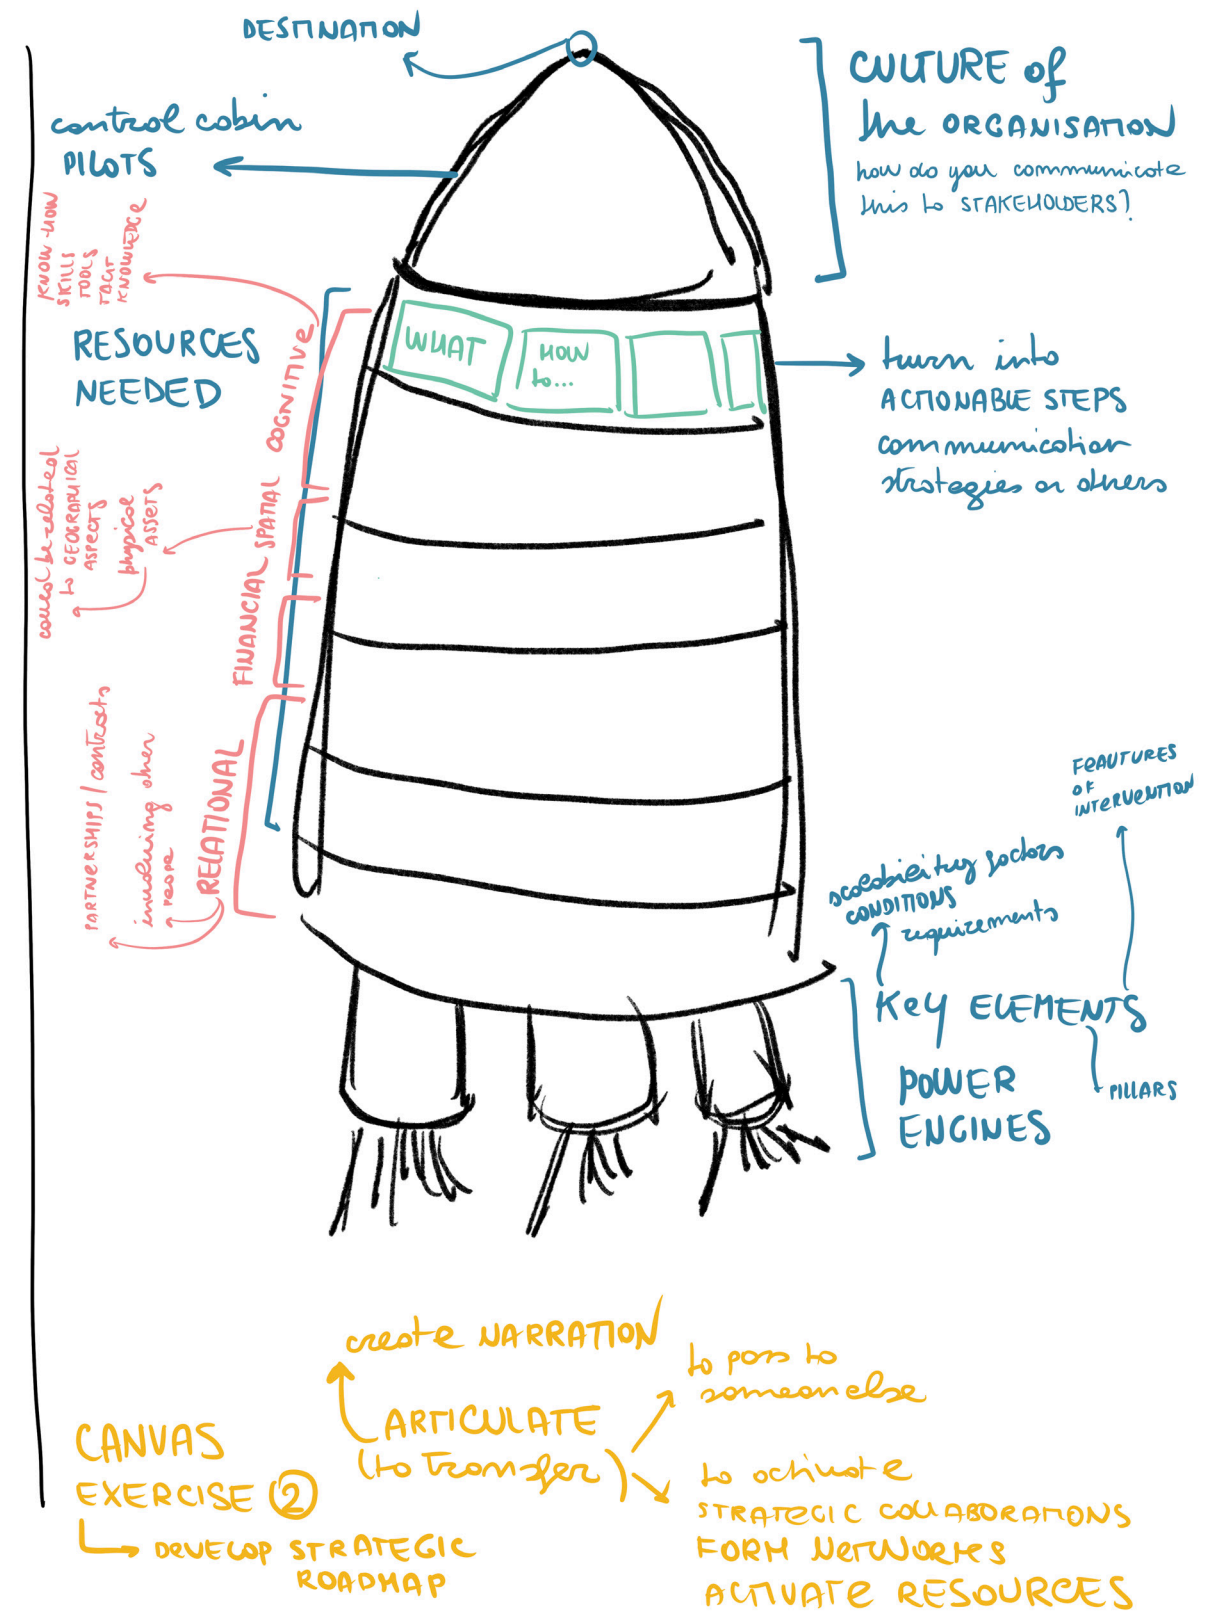 DESTINATION
CULTURE of
the ORGANISATION
how do you communicate
this to STAKEHOLDERS?
control cabin
PILOTS
KNOW-HOW
SKILLS
TOOLS
TACIT
KNOWLEDGE
RESOURCES
NEEDED
COGNITIVE
WHAT
HOW
to...
turn into
ACTIONABLE STEPS
communication
strategies or others
SPATIAL
could be related
to GEOGRAPHICAL
ASPECTS
physical
ASSETS
FINANCIAL
RELATIONAL
PARTNERSHIPS / contracts
involving other
people
FEAUTURES
OF
INTERVENTION
scalability factors
CONDITIONS
requirements
Key ELEMENTS
PILLARS
POWER
ENGINES
create NARRATION
ARTICULATE
(to transfer)
to pass to
someon else
to activate
STRATEGIC COLLABORATIONS
FORM NETWORKS
ACTIVATE RESOURCES
CANVAS
EXERCISE 2
DEVELOP STRATEGIC
ROADMAP